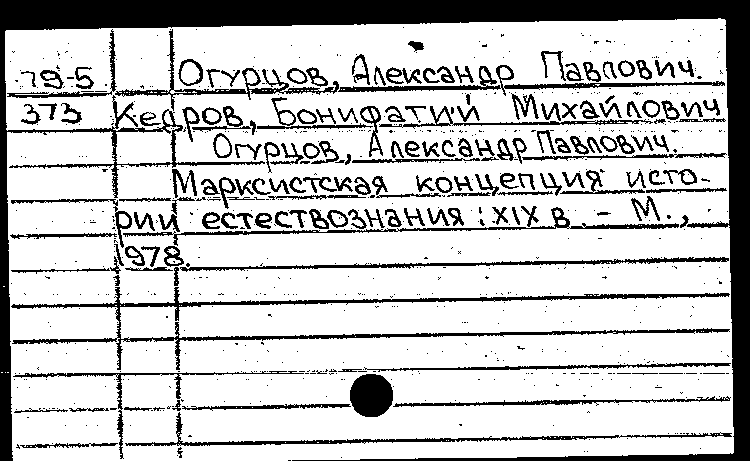 79-5 Огурцов, Александр Павлович.
373 Кедров, Бонифатий Михайлович
Огурцов, Александр Павлович.
Марксистская концепция исто-
рии естествознания : XIX в. - М.,
1978.